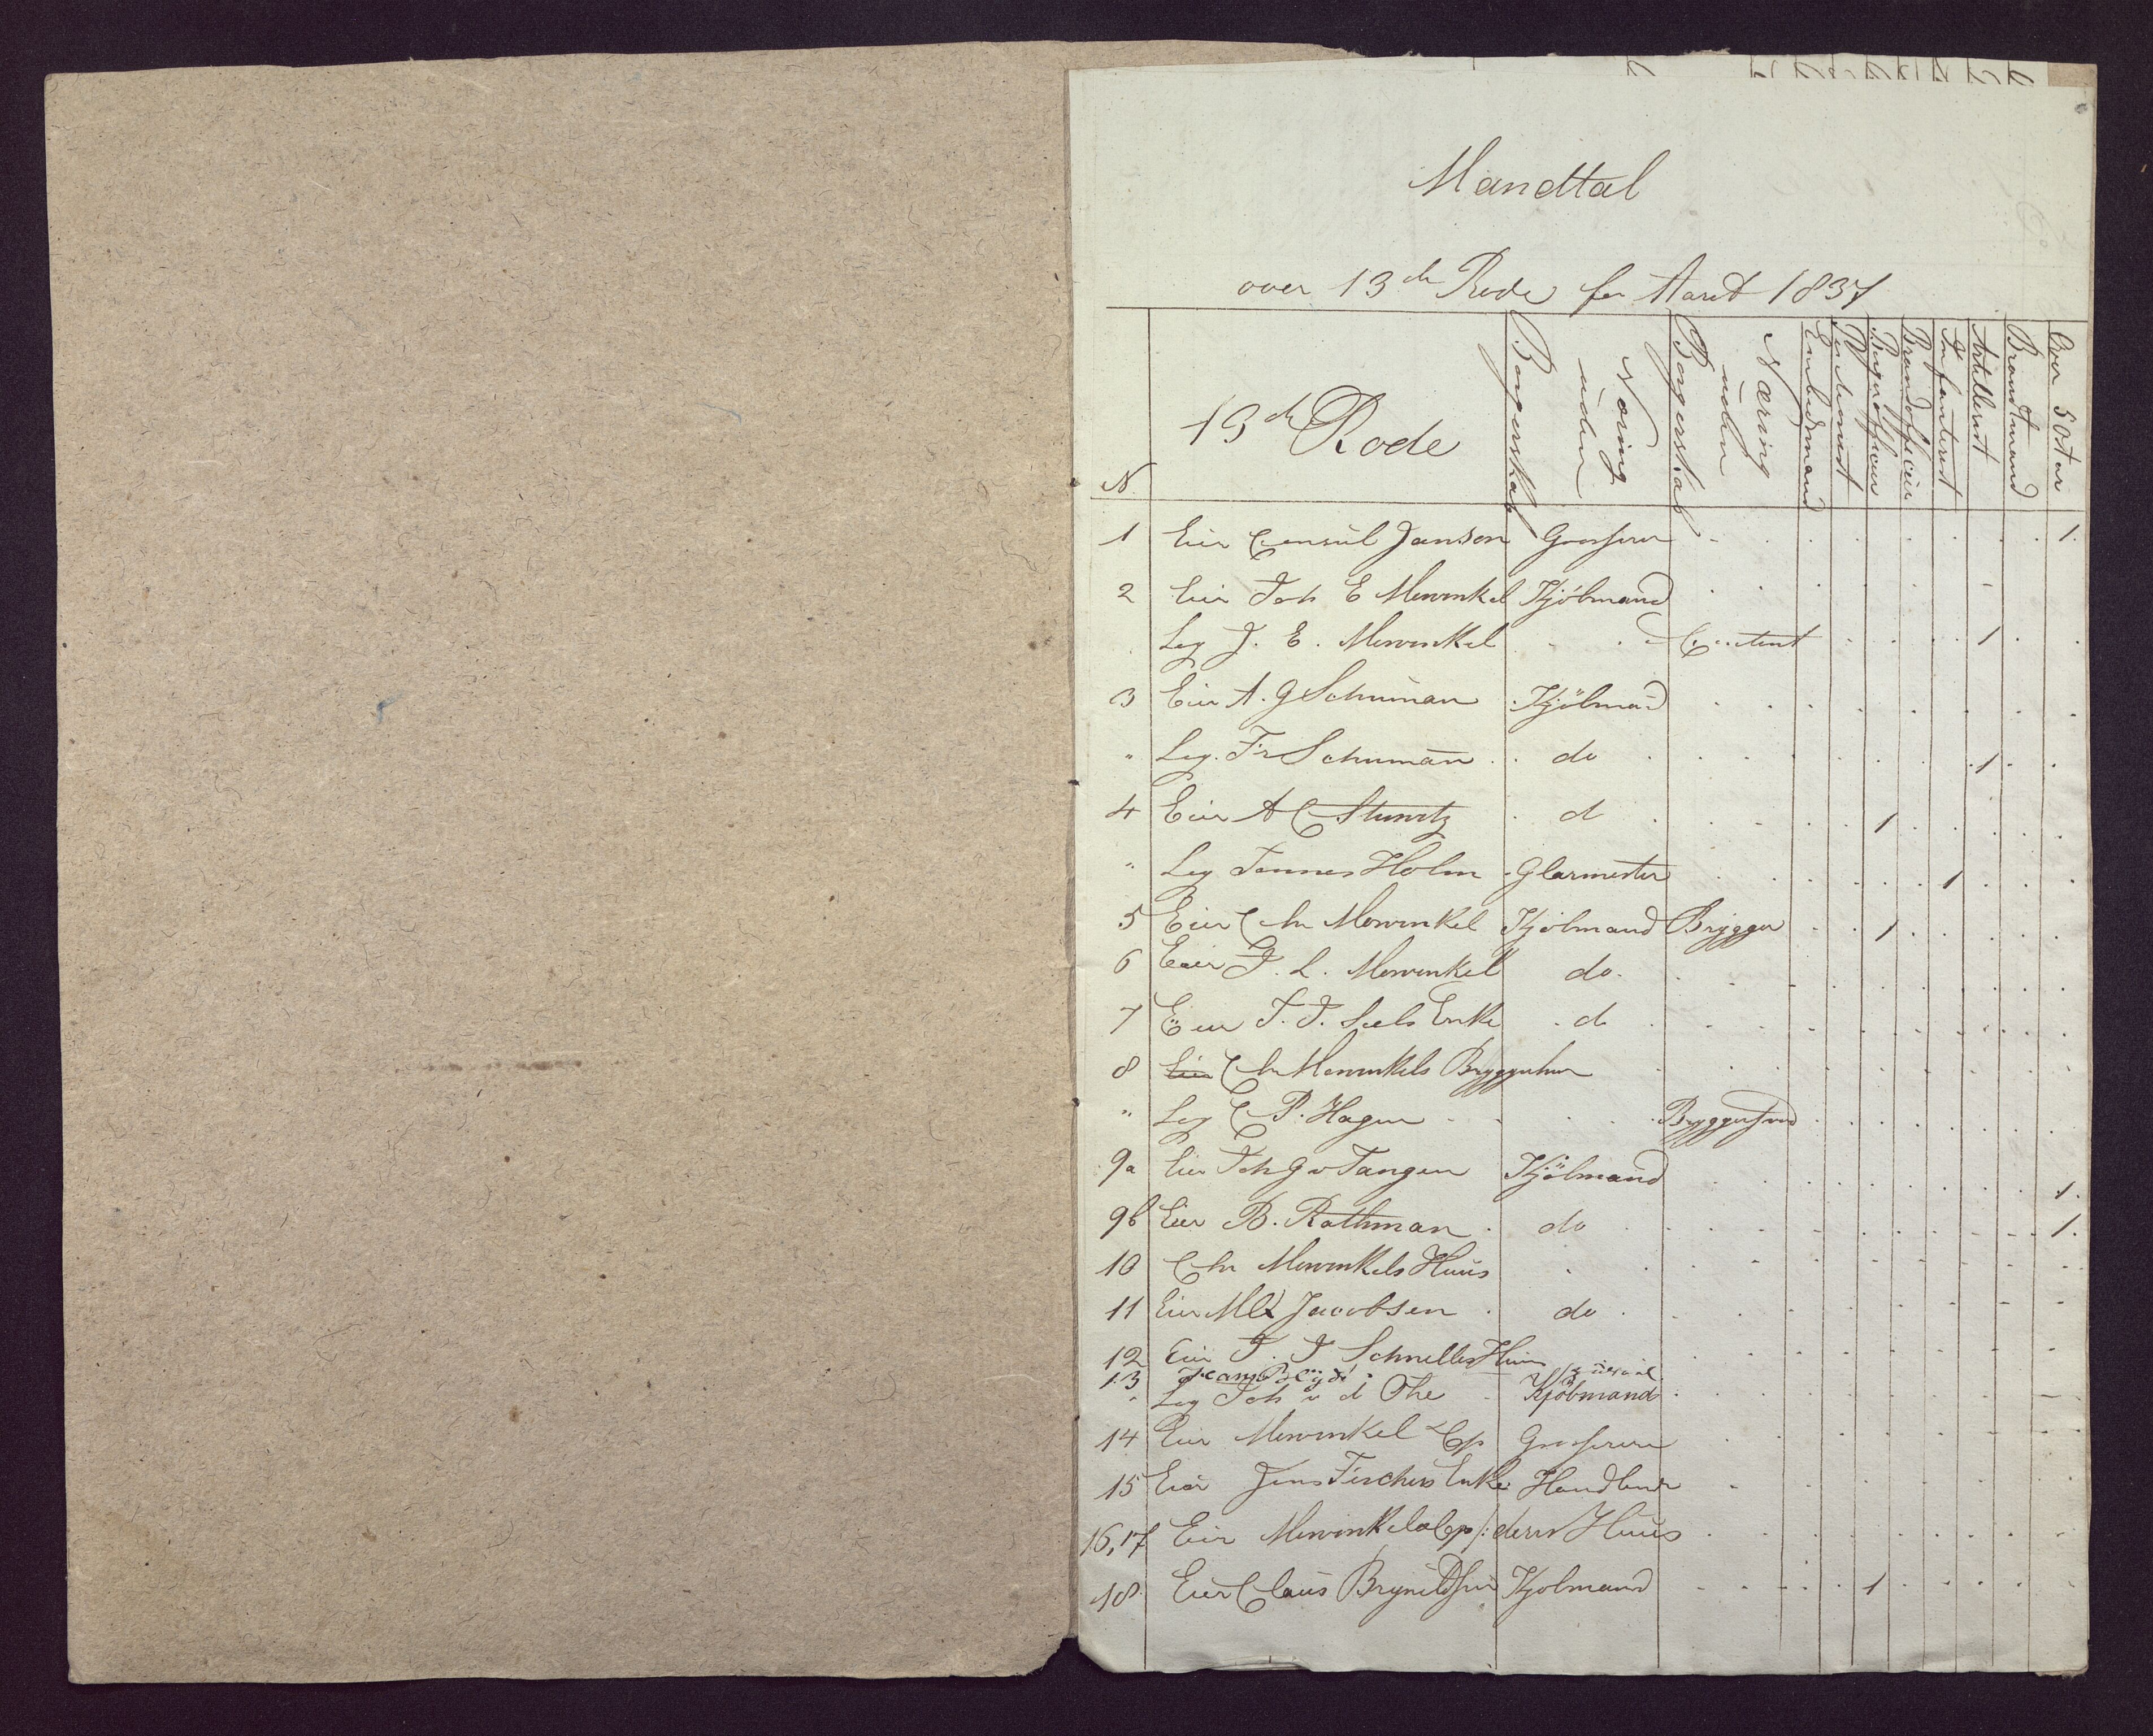 Mandtal
over 13de Rode for Aaret 1837
N
13de Rode
Borgerskab
Næring uden
Borgerskab
Næring uden
Embedsmand
Pentionist
Borgerofficier
Brandofficier
Infanterist
Artillerist
Brandtmand
Over 50 ar
1 Eier Consul Janson Grosserer 1
2 Eier Joh E Mowinkel Kjöbmand
Log J. E. Mowinkel Content 1
3 Eier A. G Schuman Kjöbmand
" Log. Fr Schuman do 1
4 Eier A C Stuwitz d 1
" Log Tennes Holm Glarmester 1
5 Eier Chr Mowinkel Kjöbmand Brygger 1
6 Eier J. L. Mowinkel do
7 Eier J. J. Sels Enke do
8 Eier Chr Mowinkels Bryggerhus
" Log C P. Hagen Bryggersvend
9a Eier Joh G v Tangen Kjöbmand 1
9b Eier B. Rothman do 1
10 Chr Mowinkels Huus
11 Eier M Jacobsen do
12 Eier J. J Schnelles Huus
13
" Log Joh v d Ohe Kjöbmand
14 Eier Mowinkel & Cp Grosserere
15 Eier Jens Fischers Enke Handlende
16, 17 Eier Mowinkel & Cp /: deres Huus
18 Eier Claus Bryneldsen Kjobmand 1